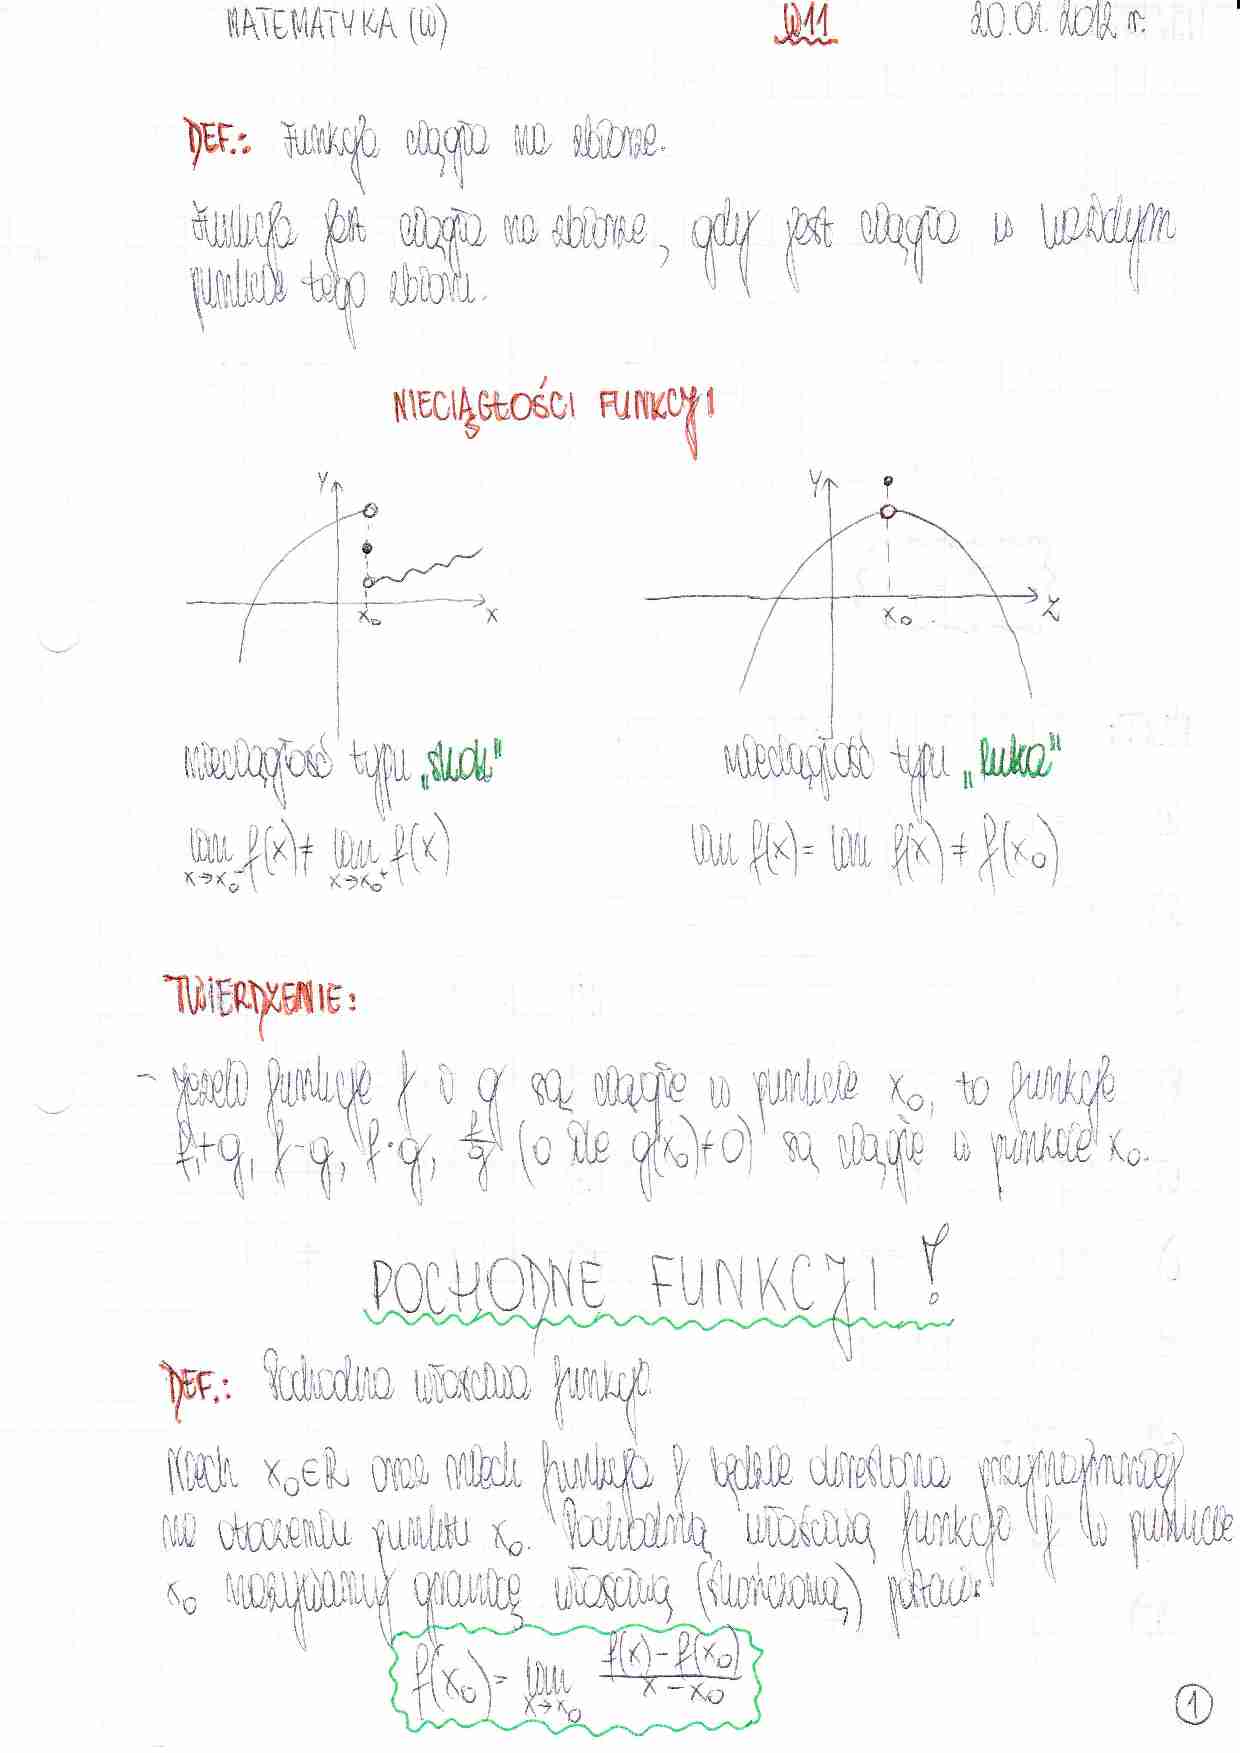 MATEMATYKA (W) W11 20.01.2012 r.
DEF.: Funkcja ciągła na zbiorze.
Funkcja jest ciągła na zbiorze, gdy jest ciągła w każdym
punkcie tego zbioru.
NIECIĄGŁOŚCI FUNKCJI
Y
x₀ X
Y
x₀ Z
nieciągłość typu „skok"
nieciągłość typu „luka"
lim f(x) ≠ lim f(x)
x→x₀⁻ x→x₀⁺
lim f(x) = lim f(x) ≠ f(x₀)
TWIERDZENIE:
- jeżeli funkcje f i g są ciągłe w punkcie x₀, to funkcje
f+g, f-g, f·g, f/g (o ile g(x₀)≠0) są ciągłe w punkcie x₀.
POCHODNE FUNKCJI !
DEF.: Pochodna właściwa funkcji.
Niech x₀∈R oraz niech funkcja f będzie określona przynajmniej
na otoczeniu punktu x₀. Pochodną właściwą funkcji f w punkcie
x₀ nazywamy granicę właściwą (skończoną) postaci:
f(x₀) = lim x→x₀ f(x) - f(x₀) / x - x₀
1